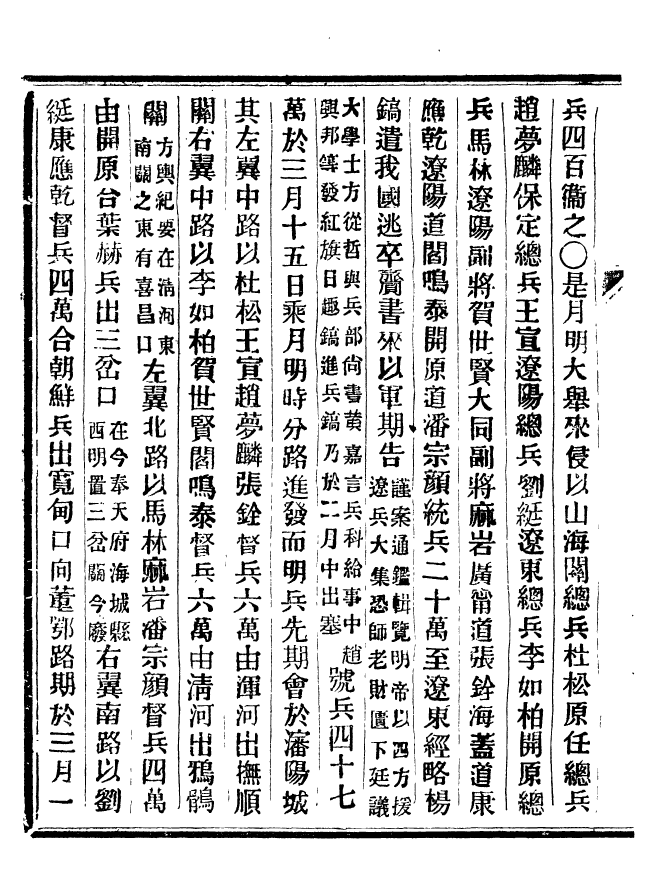 兵四百衞之〇是月明大舉來侵以山海關總兵杜松原任總兵
趙夢麟保定總兵王宣遼陽總兵劉綎遼東總兵李如柏開原總
兵馬林遼陽副將賀世賢大同副將麻岩廣甯道張銓海蓋道康
應乾遼陽道閻鳴泰開原道潘宗顏統兵二十萬至遼東經略楊
鎬遣我國逃卒齎書來以軍期告謹案通鑑輯覽明帝以四方援
遼兵大集恐師老財匱下廷議
大學士方從哲與兵部尙書黃嘉言兵科給事中趙
興邦等發紅旗日趣鎬進兵鎬乃於二月中出塞號兵四十七
萬於三月十五日乘月明時分路進發而明兵先期會於瀋陽城
其左翼中路以杜松王宣趙夢麟張銓督兵六萬由渾河出撫順
關右翼中路以李如柏賀世賢閻鳴泰督兵六萬由清河出鴉鶻
關方輿紀要在清河東
南關之東有喜昌口左翼北路以馬林麻岩潘宗顏督兵四萬
由開原合葉赫兵出三岔口在今奉天府海城縣
西明置三岔關今廢右翼南路以劉
綎康應乾督兵四萬合朝鮮兵出寬甸口向董鄂路期於三月一